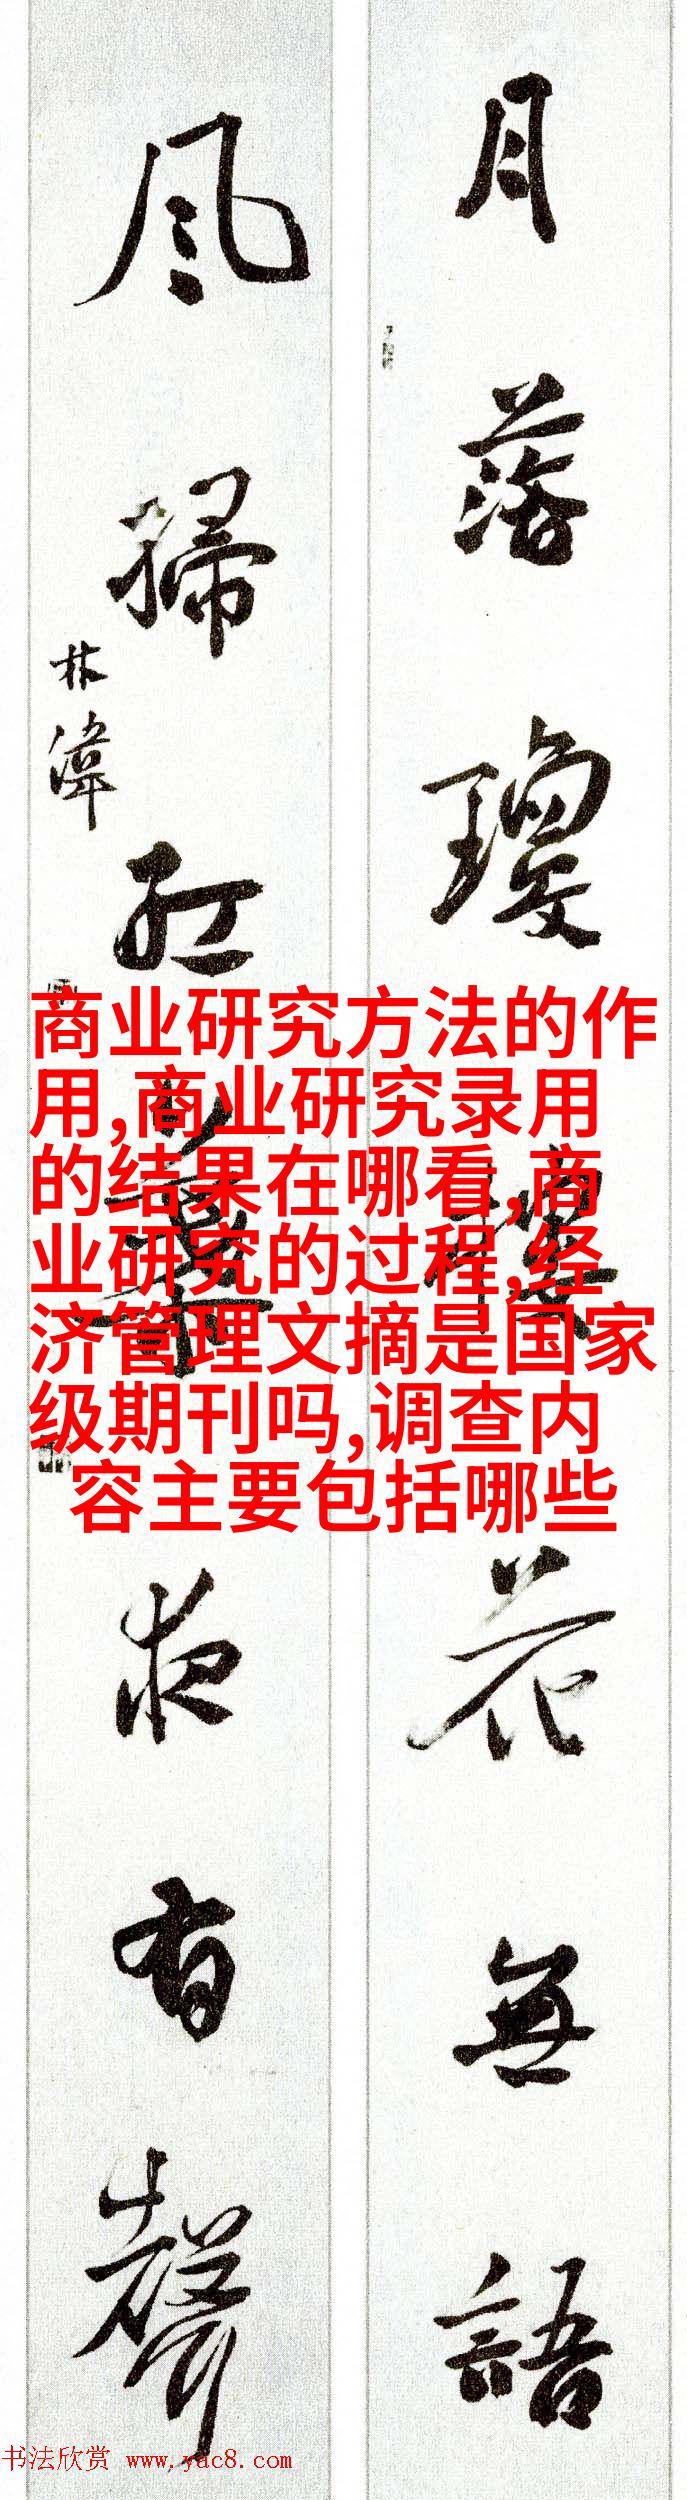 月落瓊樓花無語
風掃紅葉夜有聲
林偉
商业研究方法的作
用,商业研究录用
的结果在哪看,商
业研究的过程,经
济管理文摘是国家
级期刊吗,调查内
容主要包括哪些
书法欣赏 www.yac8.com